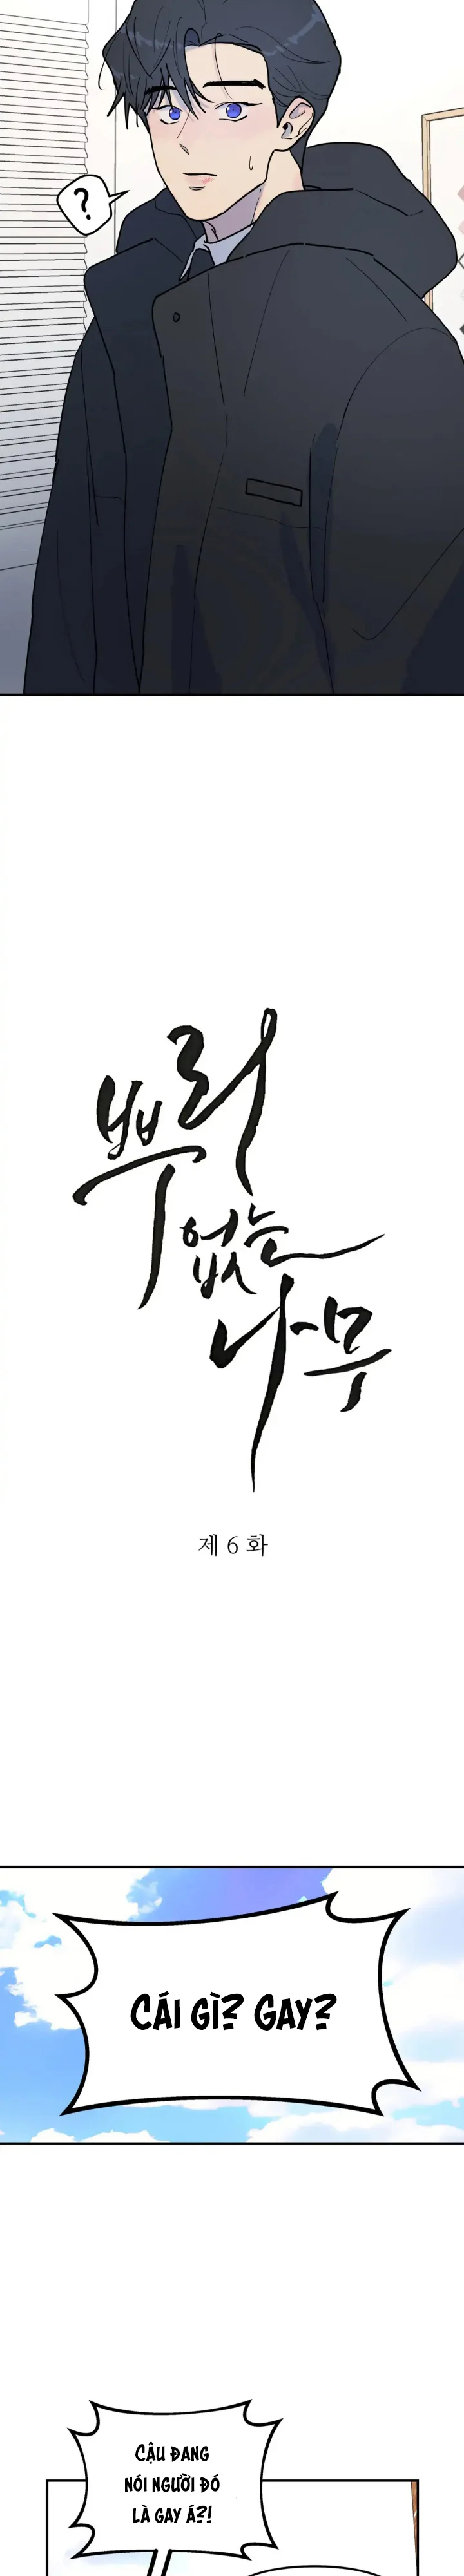 ?
뿌리
없는
나무
제 6 화
CÁI GÌ? GAY?
CẬU ĐANG
NÓI NGƯỜI ĐÓ
LÀ GAY Á?!